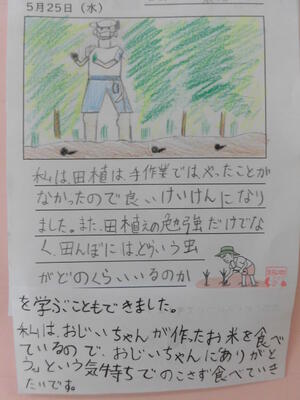 5月25日(水)
私は、田植は手作業ではやったことが
なかったので良いけいけんになり
ました。また、田植えの勉強だけでな
く、田んぼには、どういう虫
がどのくらいいるのか
を学ぶこともできました。
私は、おじいちゃんが作ったお米を食べ
ているので、おじいちゃんに「ありがと
う。」という気持ちでのこさず食べていき
たいです。